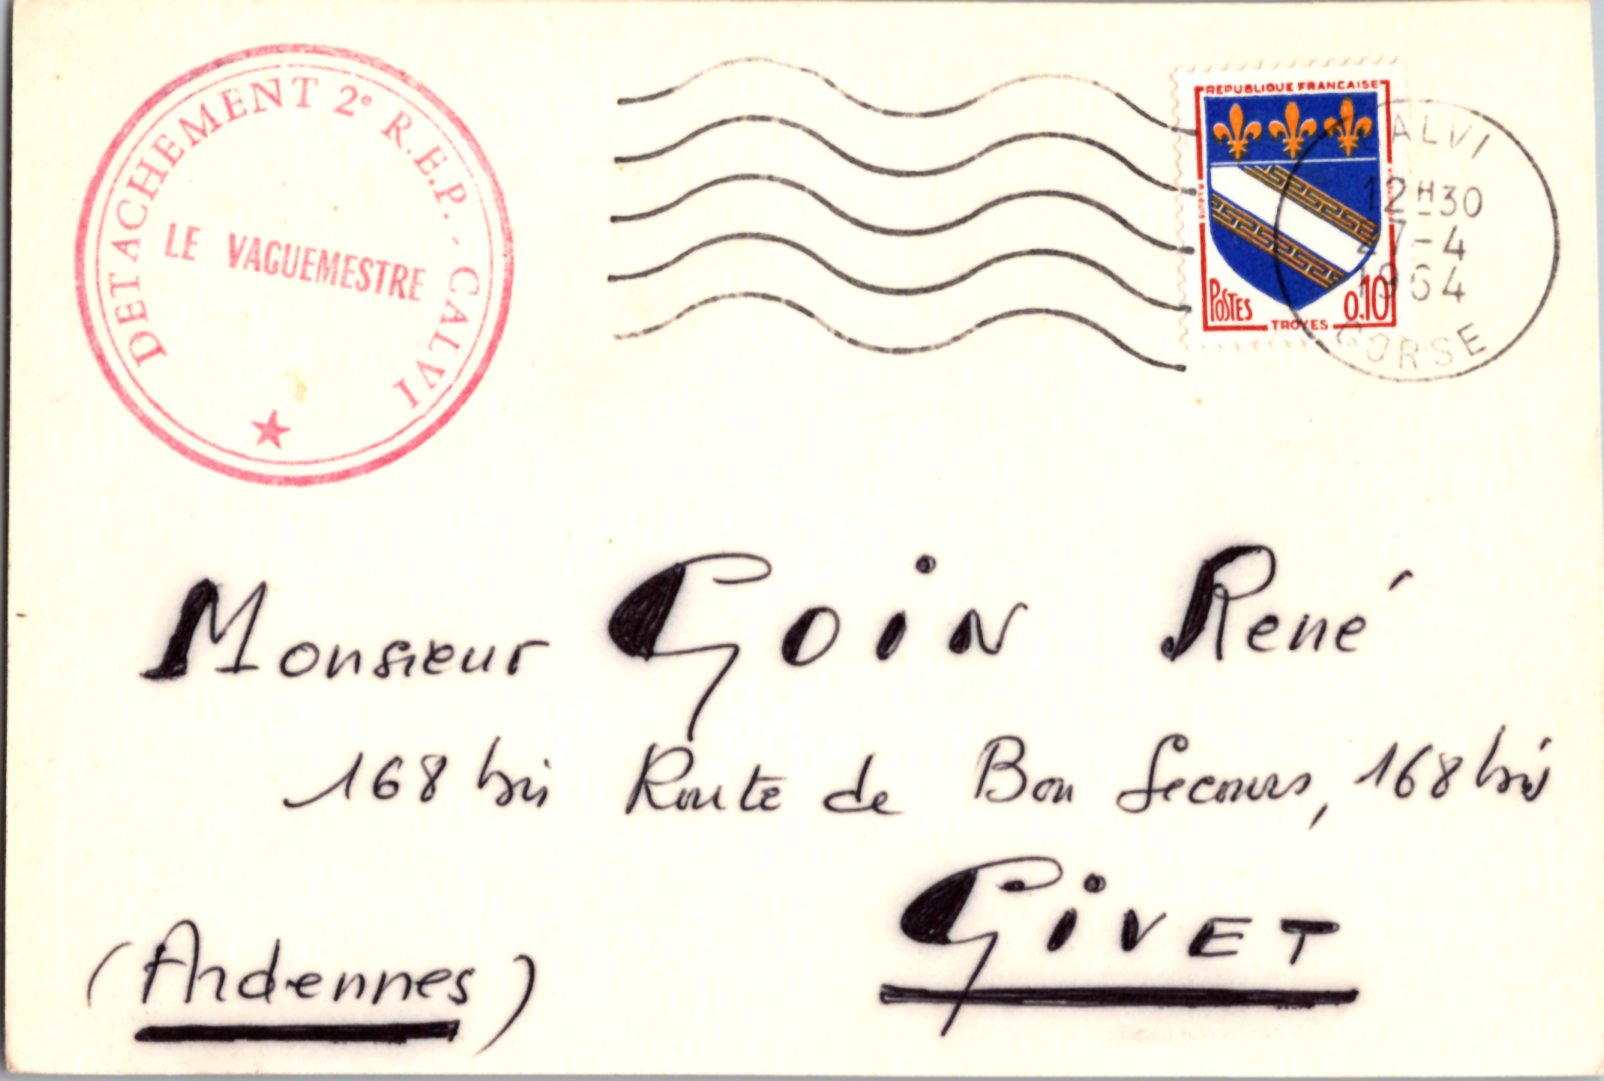 DETACHEMENT 2e R.E.P. - CALVI
LE VAGUEMESTRE
REPUBLIQUE FRANCAISE
POSTES
0,10
TROYES
CALVI
12H30
27-4
1964
CORSE
Monsieur GOIN René
168 bis Route de Bon Secours, 168 bis
GIVET
(Ardennes)